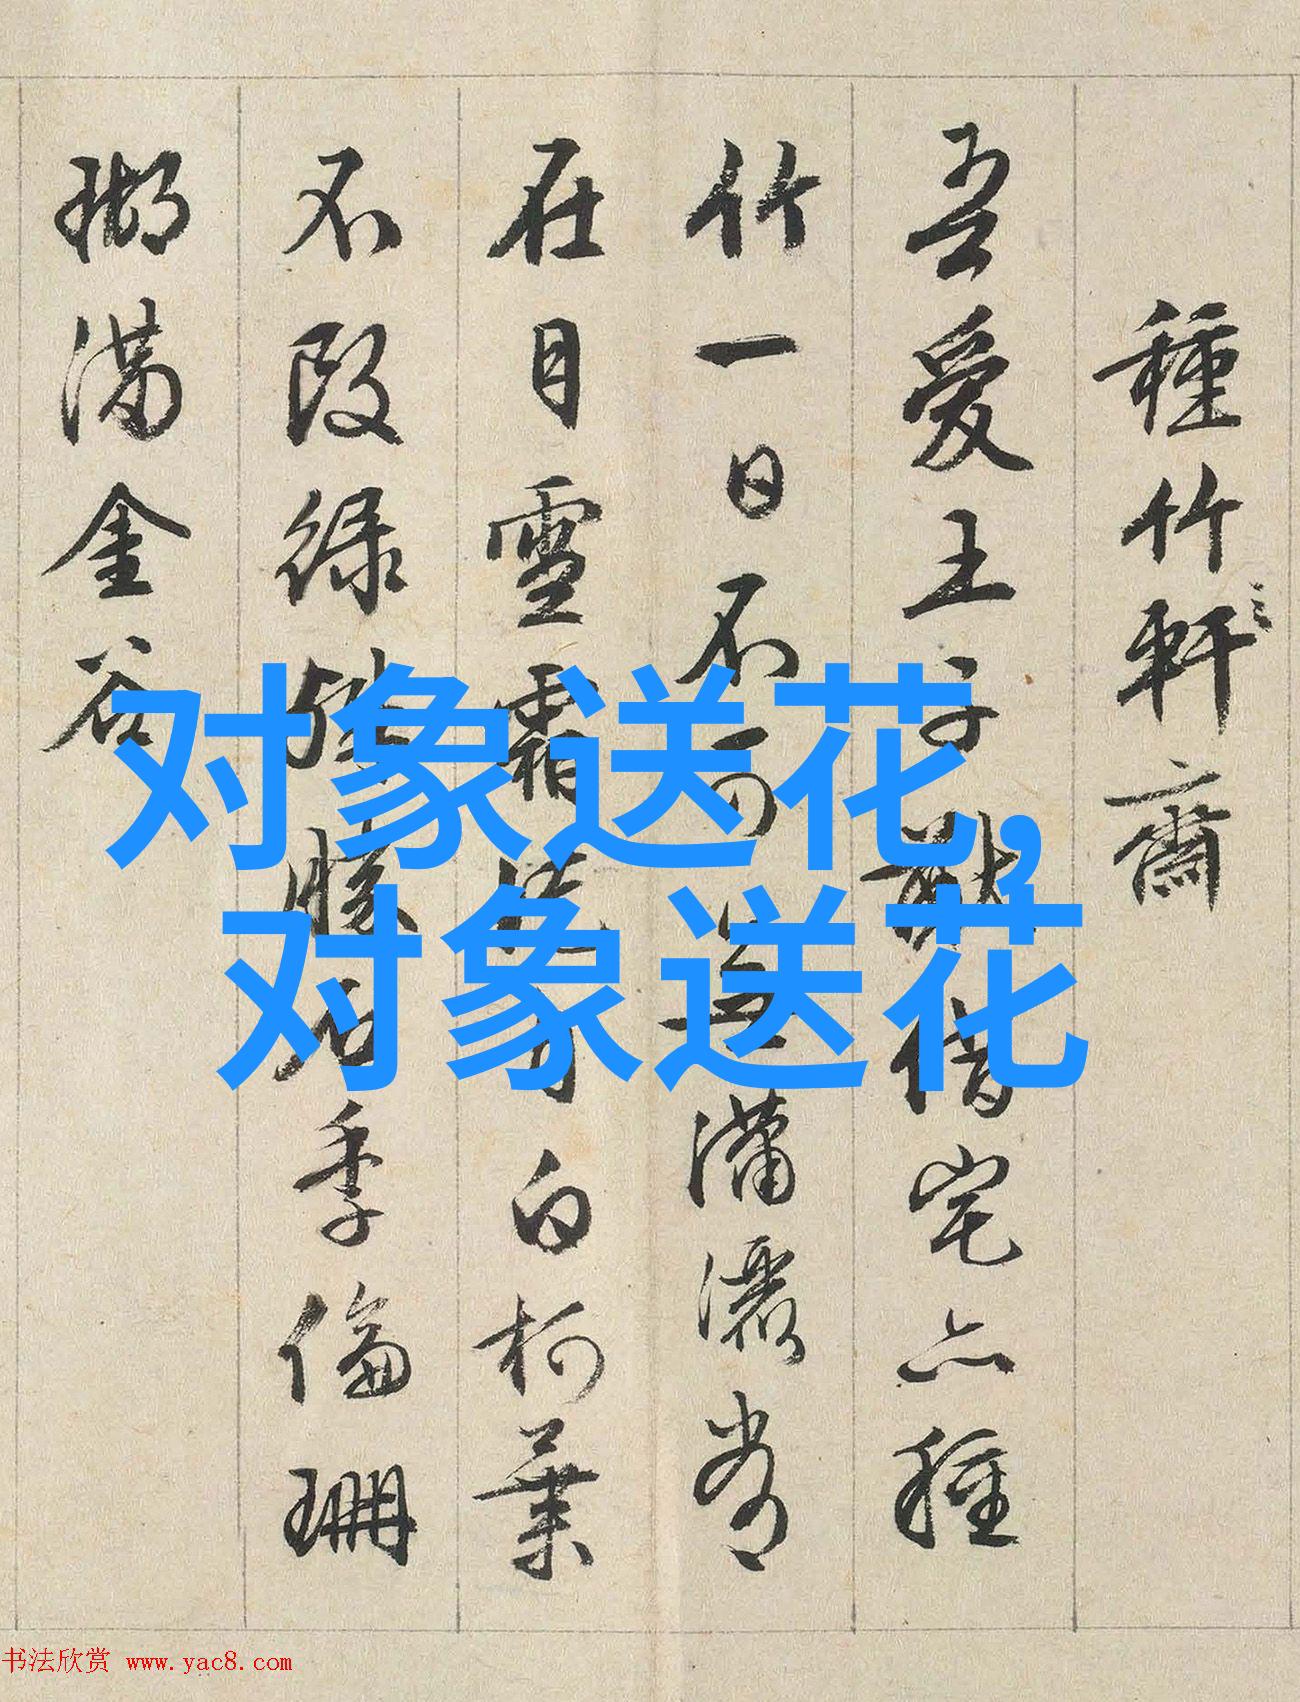 種竹軒齋
吾愛王子猷借宅亦種
竹一日不可無瀟灑常
在目雪霜徒自白柯葉
不改綠殊勝石季倫珊
瑚滿金谷
对象送花,
对象送花
书法欣赏 www.yac8.com